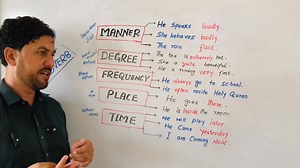 VERB
MANNER
He Speaks loudly.
She behaves badly.
The ran fast.
DEGREE
The tea is extremely hot.
She is quite beautiful.
He is running very fast.
FREQUENCY
He always go to school.
He often recite Holy Quran.
PLACE
He goes there.
He is inside the room.
TIME
We will Play later.
He Came yesterday.
I am Coming Now